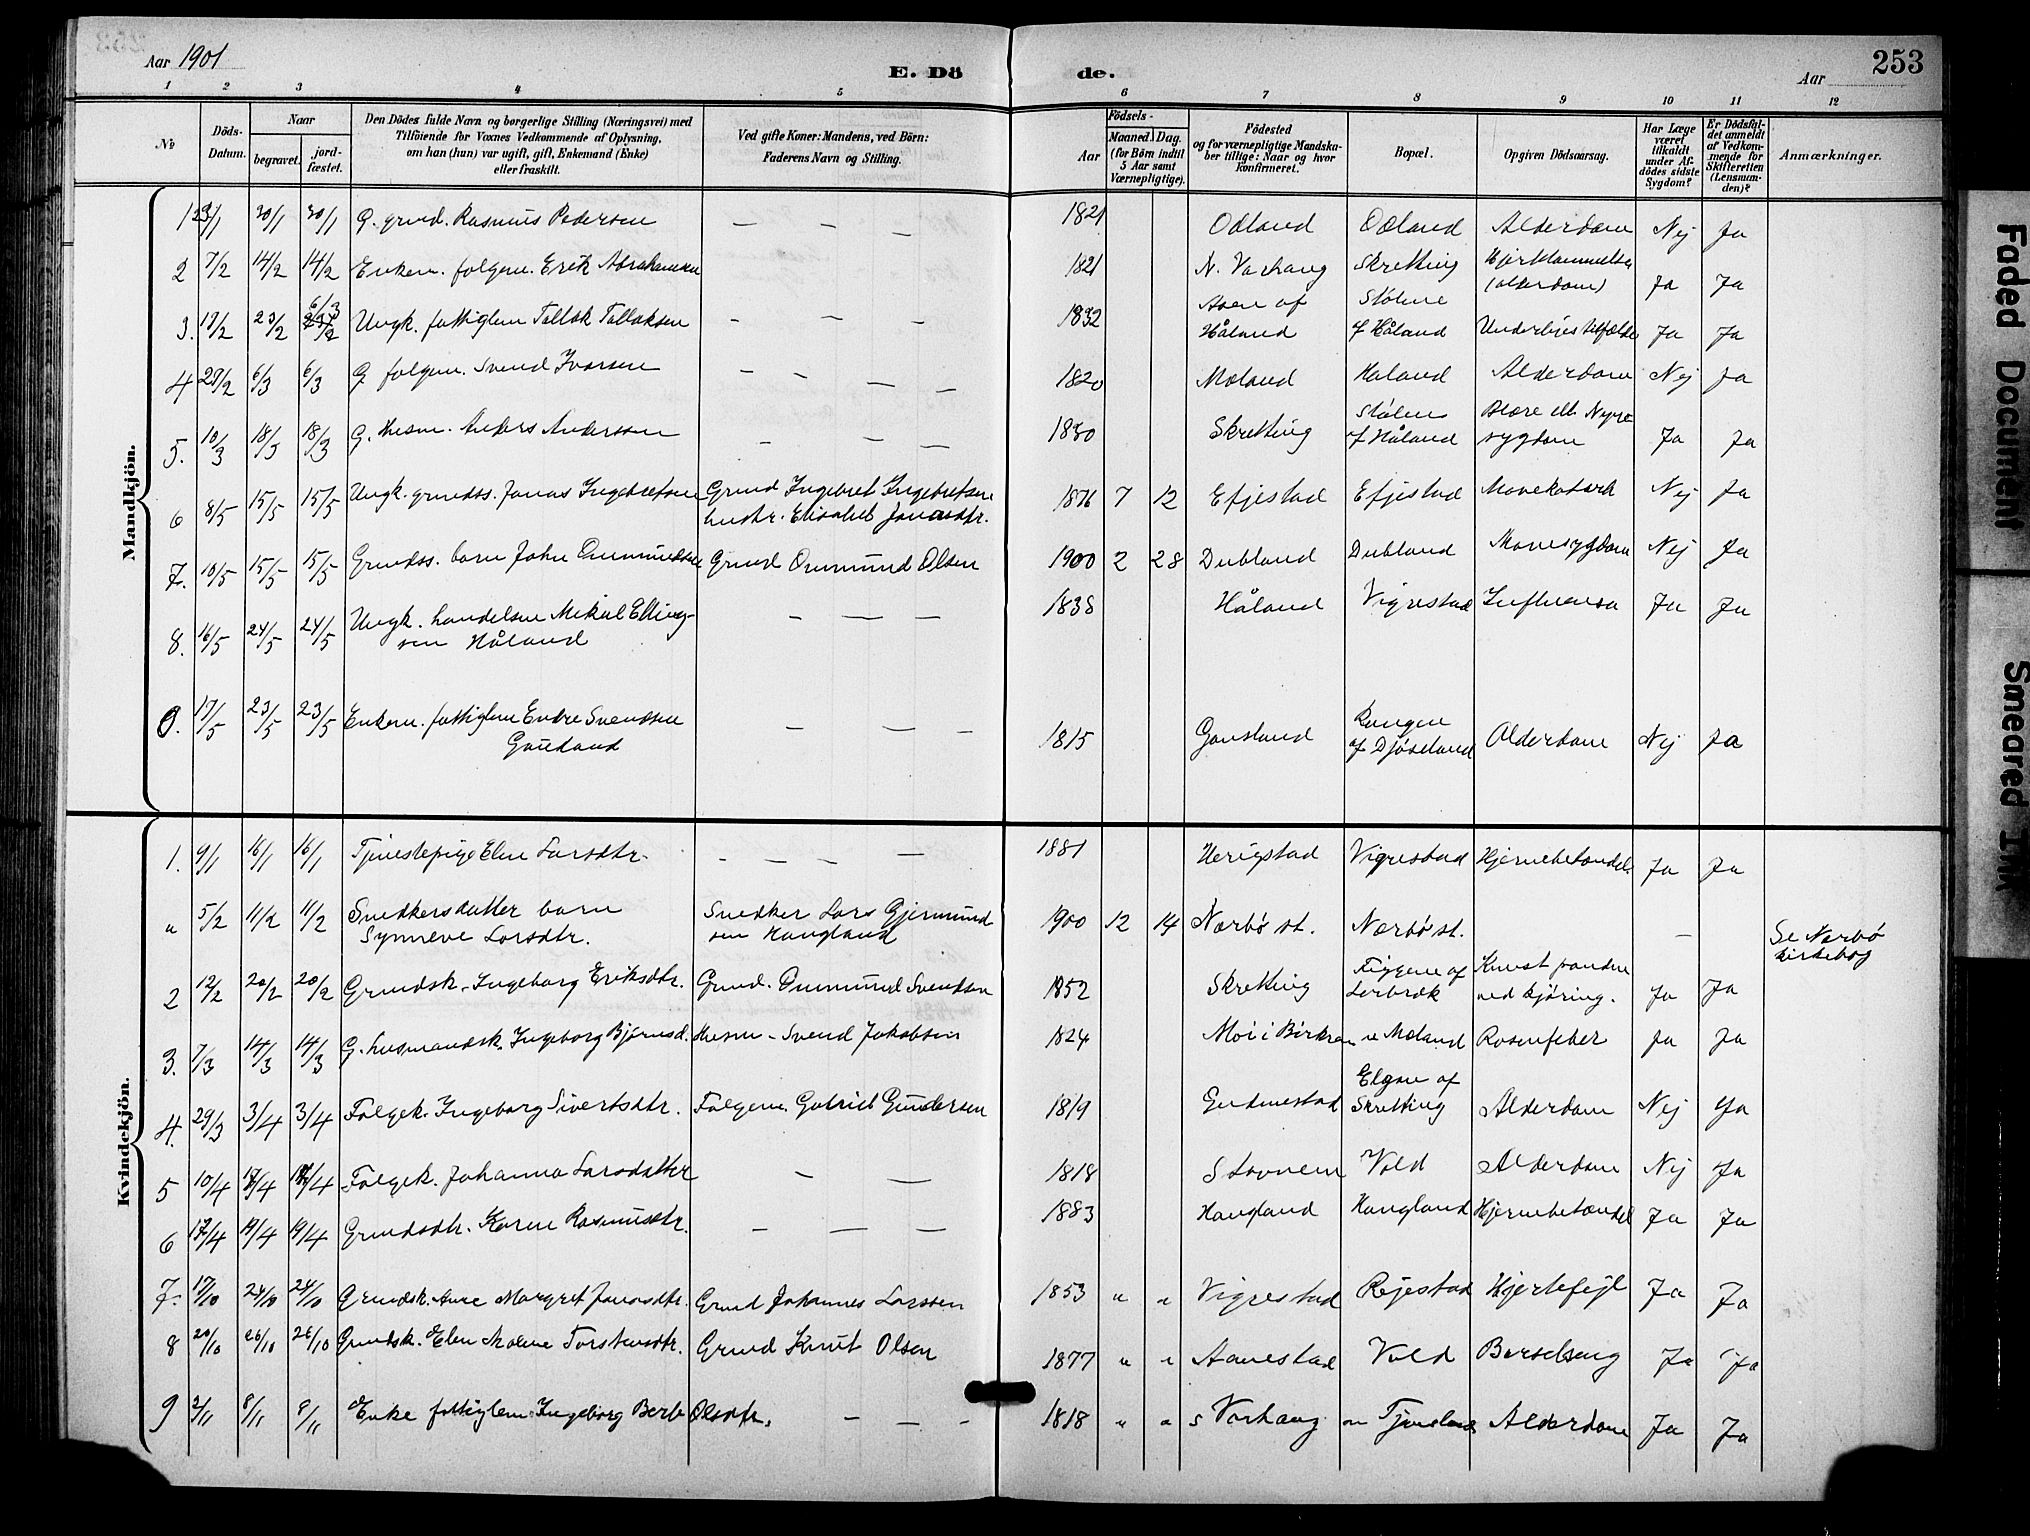 Aar 1901
E. Dö
de.
Aar
253
1 2 3 4 5 6 7 8 9 10 11 12
№
Döds-
Datum.
Naar
begravet.
jord-
fæstet.
Den Dödes fulde Navn og borgerlige Stilling (Næringsvei) med
Tilföiende for Voxnes Vedkommende af Oplysning,
om han (hun) var ugift, gift, Enkemand (Enke)
eller fraskilt.
Ved gifte Koner: Mandens, ved Börn:
Faderens Navn og Stilling.
Födsels-
Aar
Maaned.
Dag.
(for Börn indtil
5 Aar samt
Værnepligtige).
Födested
og for værnepligtige Mandska-
ber tillige: Naar og hvor
konfirmeret.
Bopæl.
Opgiven Dödsaarsag.
Har Læge
været
tilkaldt
under Af-
dödes sidste
Sygdom?
Er Dödsfal-
det anmeldt
af Vedkom-
mende for
Skifteretten
(Lensman-
den)?
Anmærkninger.
Mandkjön.
1 30/1 30/1 G. grmd. Rasmus Pedersen — — — 1821 Odland Odland Alderdom Nej Ja
2 7/2 14/2 14/2 Enkem. folgem. Erik Abrahamsen 1821 N. Varhaug Skretting
(alderdom) Ja Ja
3. 17/2 23/2 6/3 Ungk. fattiglem Tollak Tollaksen — — — 1832 Aasen af Stølene
Håland af Håland Underlivstilfælde Ja Ja
4 27/2 6/3 6/3 G. folgem. Svend Ivarsen — — — — 1820 Moland Haland Alderdom Nej Ja
5. 10/3 18/3 18/3 G. Husm. Anders Andersen — — — 1830 Skretting Stølen Blære ell. Nyre
af Håland sygdom Ja Ja
6 8/5 15/5 15/5 Ungk. grmdss. Jonas Ingebretsen Grmd Ingebret Ingebretsen 1876 7 12 Efjestad Efjestad Mavekatarh Nej Ja
hustr. Elisabet Jonasdtr.
7. 10/5 15/5 15/5 Grmdss. barn John Ommundsen Grmd Ommund Olsen 1900 2 28 Dubland Dubland Mavesygdom Nej Ja
8. 16/5 24/5 24/5 Ungk. handelsm Mikal Elling- — — — 1838 Håland Vigrestad Influensa Ja Ja
sen Håland
9. 17/5 23/5 23/5 Enkem. fattiglem Endre Svendsen — — — 1815 Gausland Rungen
af Djøseland Alderdom Nej Ja
Kvindekjön.
1. 9/1 16/1 16/1 Tjenestepige Elen Larsdtr. — — — — 1881 Herigstad Vigrestad Hjernebetændel. Ja Ja
" 5/2 11/2 11/2 Snedkersdatter barn Snedker Lars Gjermund 1900 12 14 Nærbø st. Nærbø st. — Se Nærbø
Synneve Larsdtr. sen Haugland kirkebog
2 12/2 20/2 20/2 Grmdsk. Ingeborg Eriksdtr. Grmd. Ommund Svendsen 1852 Skretting Tiggene af Knust panden
Lerbræk ved kjøring. Ja Ja
3. 7/3 14/3 14/3 G. husmandsk. Ingeborg Bjørnsd. Husm. Svend Jakobsen 1824 Moi i Birkrem Moland Rosenfeber Ja Ja
4. 29/3 3/4 3/4 Folgek. Ingeborg Sivertsdtr. Folgem. Gabriel Gundersen 1819 Gudmestad Elgane af
Skretting Alderdom Nej Ja
5 10/4 17/4 17/4 Folgek. Johanna Larsdatter — — 1818 Stavnem Vold Alderdom Nej Ja
6 12/4 19/4 19/4 Grmdsdtr. Karen Rasmusdtr. — — — 1883 Haugland Haugland Hjernebetændel Ja Ja
7. 17/10 24/10 24/10 Grmdsk. Ane Margret Jonasdtr. Grmd Johannes Larssen 1853 " " Vigrestad Rejestad Hjertefejl Ja Ja
8 20/10 26/10 26/10 Grmdsk. Elen Malene Torstensdtr. Grmd Knut Olsen 1877 " " Aanestad Vold Barselseng Ja Ja
9 2/11 8/11 8/11 Enke fattiglem Ingeborg Berte Olsdtr. — — — 1818 " " S Varhaug Alderdom Ja Ja
Faded Document
Smeared Ink